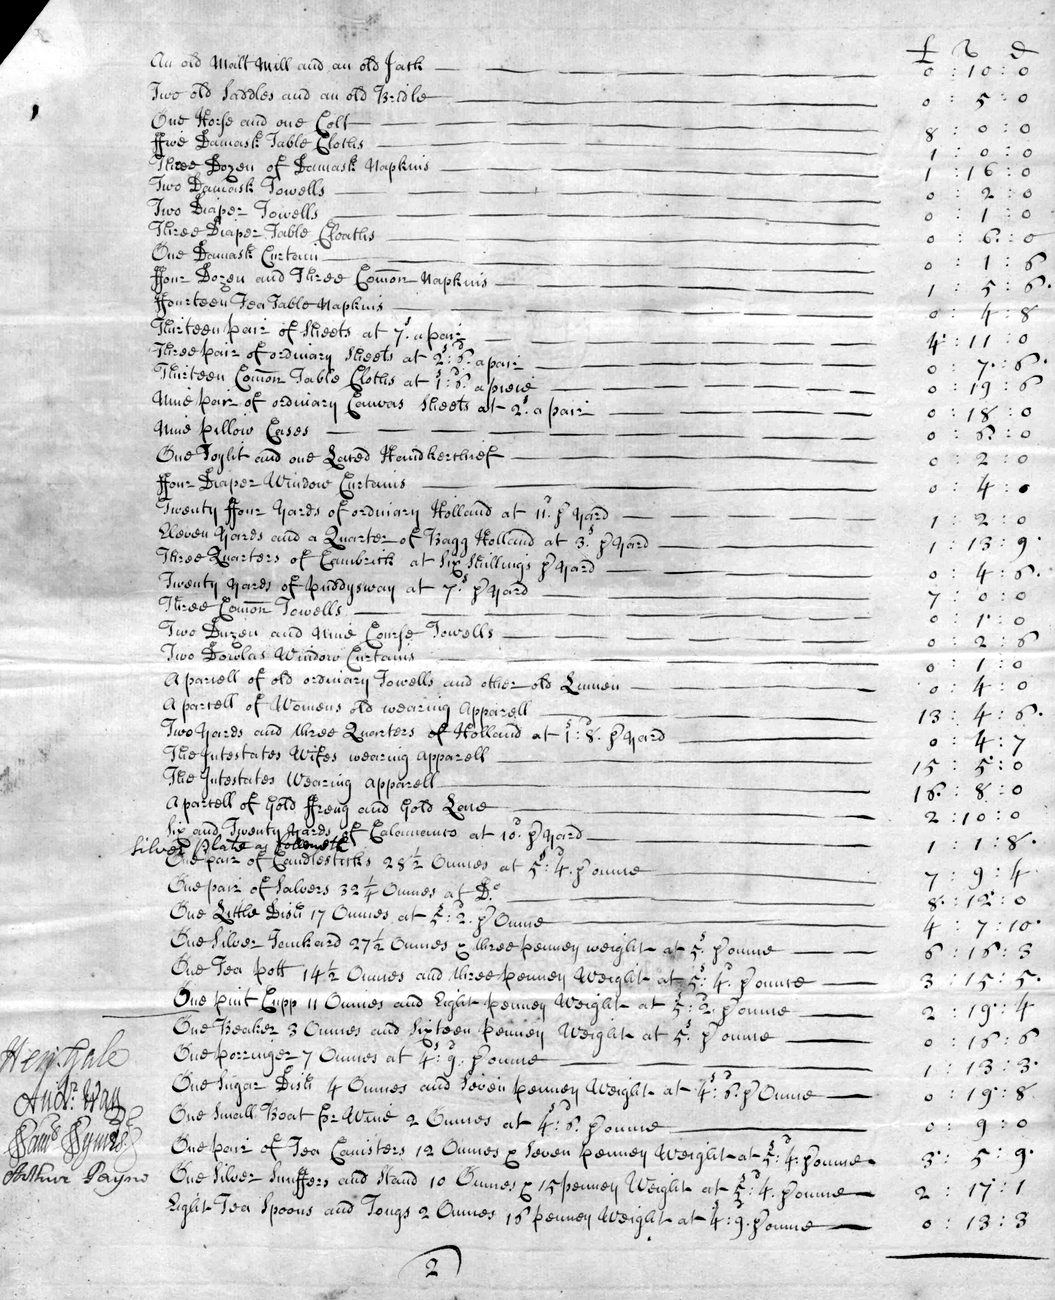 £ s d
An old Malt Mill and an old Jack 0 : 10 : 0
Two old Saddles and an old Bridle 0 : 5 : 0
One Horse and one Colt 8 : 0 : 0
ffive Damask Table Cloths 1 : 0 : 0
Three Dozen of Damask Napkins 1 : 16 : 0
Two Damask Towells 0 : 2 : 0
Two Diaper Towells 0 : 1 : 0
Three Diaper Table Cloaths 0 : 6 : 0
One Damask Curtain 0 : 1 : 6
ffour Dozen and Three Comon Napkins 1 : 5 : 6
ffourteen Tea Table Napkins 0 : 4 : 8
Thirteen pair of Sheets at 7s. a pair 4 : 11 : 0
Three pair of ordinary Sheets at 2s: 6d. a pair 0 : 7 : 6
Thirteen Comon Table Cloths at 1s: 6d. a piece 0 : 19 : 6
Nine pair of ordinary Canvas Sheets at 2s. a pair 0 : 18 : 0
Nine pillow Cases 0 : 6 : 0
One Toylit and one Laced Handkerchief 0 : 2 : 0
ffour Diaper Window Curtains 0 : 4 : 0
Twenty ffour Yards of ordinary Holland at 11d. p Yard 1 : 2 : 0
Eleven Yards and a Quarter of Bagg Holland at 3s. p Yard 1 : 13 : 9
Three Quarters of Cambrick at Six Shillings p Yard 0 : 4 : 6
Twenty Yards of puddysway at 7s. p Yard 7 : 0 : 0
Three Comon Towells 0 : 1 : 0
Two Duzen and Nine Course Towells 0 : 2 : 6
Two Dowlas Window Curtains 0 : 1 : 0
A parcell of old ordinary Towells and other old Linnen 0 : 4 : 0
A parcell of Womens old wearing Apparell 13 : 4 : 6
Two Yards and three Quarters of Holland at 1s: 8d. p Yard 0 : 4 : 7
The Intestates Wifes wearing Apparell 15 : 5 : 0
The Intestates Wearing Apparell 16 : 8 : 0
A parcell of Gold ffreng and Gold Lace 2 : 10 : 0
Six and Twenty Yards of Calamanco at 10d. p Yard 1 : 1 : 8
Silver Plate as followeth
One pair of Candlesticks 28 1/2 Ounces at 5s: 4d. p ounce 7 : 9 : 4
One pair of Salvers 32 1/4 Ounces at Do. 8 : 12 : 0
One Little Dish 17 Ounces at 5s: 2d. p Ounce 4 : 7 : 10
One Silver Tankard 27 1/2 Ounces & three penney weight at 5s. p ounce 6 : 16 : 3
One Tea pott 14 1/2 Ounces and three penney Weight at 5s: 4d. p ounce 3 : 15 : 5
One pint Cupp 11 Ounces and Eight penney Weight at 5s: 2d. p ounce 2 : 19 : 4
One Beaker 3 Ounces and Sixteen penney Weight at 5s. p ounce 0 : 16 : 6
One porringer 7 Ounces at 4s: 9d. p ounce 1 : 13 : 3
One Sugar Dish 4 Ounces and Seven penney Weight at 4s: 6d. p Ounce 0 : 19 : 8
One Small Boat for Wine 2 Ounces at 4s: 6d. p ounce 0 : 9 : 0
One pair of Tea Canisters 12 Ounces & Seven penney Weight at 5s: 4d. p ounce 3 : 5 : 9
One Silver Snuffers and Stand 10 Ounces & 15 penney Weight at 5s: 4d. p ounce 2 : 17 : 1
Eight Tea Spoons and Tongs 2 Ounces 16 penney Weight at 4s: 9d. p ounce 0 : 13 : 3
Andr. Hay
Arthur Payne
2